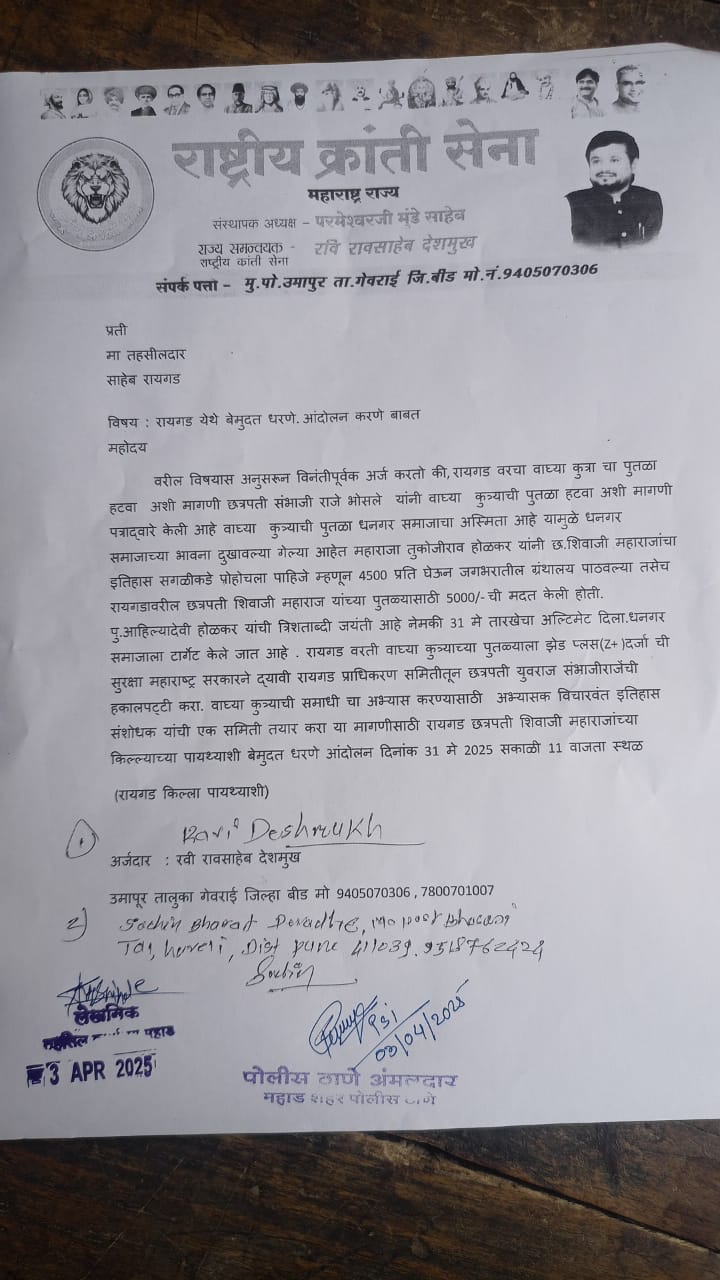 राष्ट्रीय क्रांती सेना
महाराष्ट्र राज्य
संस्थापक अध्यक्ष – परमेश्वरजी मुंडे साहेब
राज्य समन्वयक - रवि रावसाहेब देशमुख
राष्ट्रीय कांती सेना
संपर्क पत्ता – मु.पो.उमापुर ता.गेवराई जि.बीड मो.नं.9405070306
प्रती
मा तहसीलदार
साहेब रायगड
विषय : रायगड येथे बेमुदत धरणे. आंदोलन करणे बाबत
महोदय
वरील विषयास अनुसरून विनंतीपूर्वक अर्ज करतो की, रायगड वरचा वाघ्या कुत्रा चा पुतळा
हटवा अशी मागणी छत्रपती संभाजी राजे भोसले यांनी वाघ्या कुत्र्याची पुतळा हटवा अशी मागणी
पत्राद्वारे केली आहे वाघ्या कुत्र्याची पुतळा धनगर समाजाचा अस्मिता आहे यामुळे धनगर
समाजाच्या भावना दुखावल्या गेल्या आहेत महाराजा तुकोजीराव होळकर यांनी छ.शिवाजी महाराजांचा
इतिहास सगळीकडे प्रोहोचला पाहिजे म्हणून 4500 प्रति घेऊन जगभरातील ग्रंथालय पाठवल्या तसेच
रायगडावरील छत्रपती शिवाजी महाराज यांच्या पुतळ्यासाठी 5000/- ची मदत केली होती.
पु.आहिल्यादेवी होळकर यांची त्रिशताब्दी जयंती आहे नेमकी 31 मे तारखेचा अल्टिमेट दिला.धनगर
समाजाला टार्गेट केले जात आहे . रायगड वरती वाघ्या कुत्र्याच्या पुतळ्याला झेड प्लस(Z+ )दर्जा ची
सुरक्षा महाराष्ट्र सरकारने द्यावी रायगड प्राधिकरण समितीतून छत्रपती युवराज संभाजीराजेंची
हकालपट्टी करा. वाघ्या कुत्र्याची समाधी चा अभ्यास करण्यासाठी अभ्यासक विचारवंत इतिहास
संशोधक यांची एक समिती तयार करा या मागणीसाठी रायगड छत्रपती शिवाजी महाराजांच्या
किल्ल्याच्या पायथ्याशी बेमुदत धरणे आंदोलन दिनांक 31 मे 2025 सकाळी 11 वाजता स्थळ
(रायगड किल्ला पायथ्याशी)
1 Ravi Deshmukh
अर्जदार : रवी रावसाहेब देशमुख
उमापूर तालुका गेवराई जिल्हा बीड मो 9405070306 , 7800701007
2) Sachin Bharat Devadhe, post
Tal, haveli, Dist pune 411039. 9518762424
Sachin
लेखनिक
तहसिल महाड
3 APR 2025
PSI
03/04/2025
पोलीस ठाणे अंमलदार
महाड शहर पोलीस ठाणे